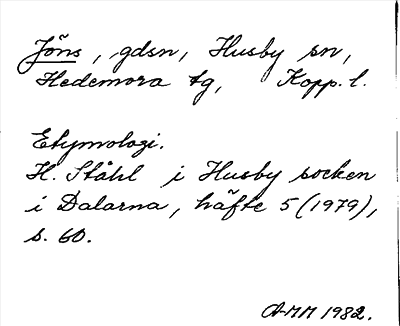 Jöns, gdsn, Husby sn,
Hedemora tg, Kopp. l.
Etymologi.
H. Ståhl i Husby socken
i Dalarna, häfte 5 (1979),
s. 60.
AMM 1982.